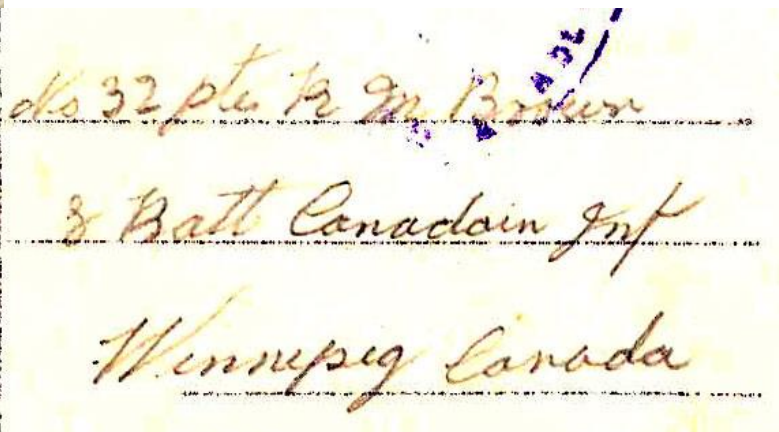 No 32 Pte R M Brown
8 Batt Canadain Inf
Winnipeg Canada